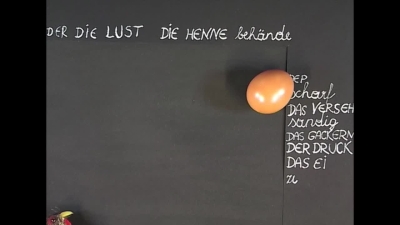 DER DIE LUST DIE HENNE behände
DEP
scharf
DAS VERSEH
sandig
DAS GACKERN
DER DRUCK
DAS EI
zu